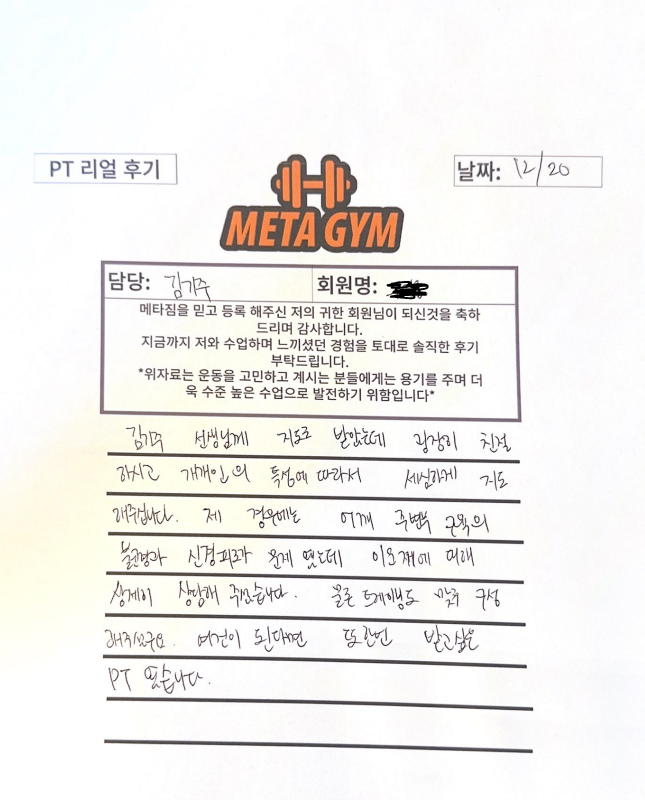 PT 리얼 후기
날짜: 12/20
META GYM
담당: 김기주
회원명:
메타짐을 믿고 등록 해주신 저의 귀한 회원님이 되신것을 축하
드리며 감사합니다.
지금까지 저와 수업하며 느끼셨던 경험을 토대로 솔직한 후기
부탁드립니다.
*위자료는 운동을 고민하고 계시는 분들에게는 용기를 주며 더
욱 수준 높은 수업으로 발전하기 위함입니다*
김기주 선생님께 지도로 받았는데 굉장히 친절
하시고 개개인의 특성에 따라서 세심하게 지도
해주십니다. 제 경우에는 어깨 주변부 근육의
불균형과 신경피로가 문제 였는데 이 문제에 대해
상세히 상담해 주셨습니다. 물론 트레이닝도 맞춰 구성
해주셨구요. 여건이 된다면 또한번 받고싶은
PT 였습니다.